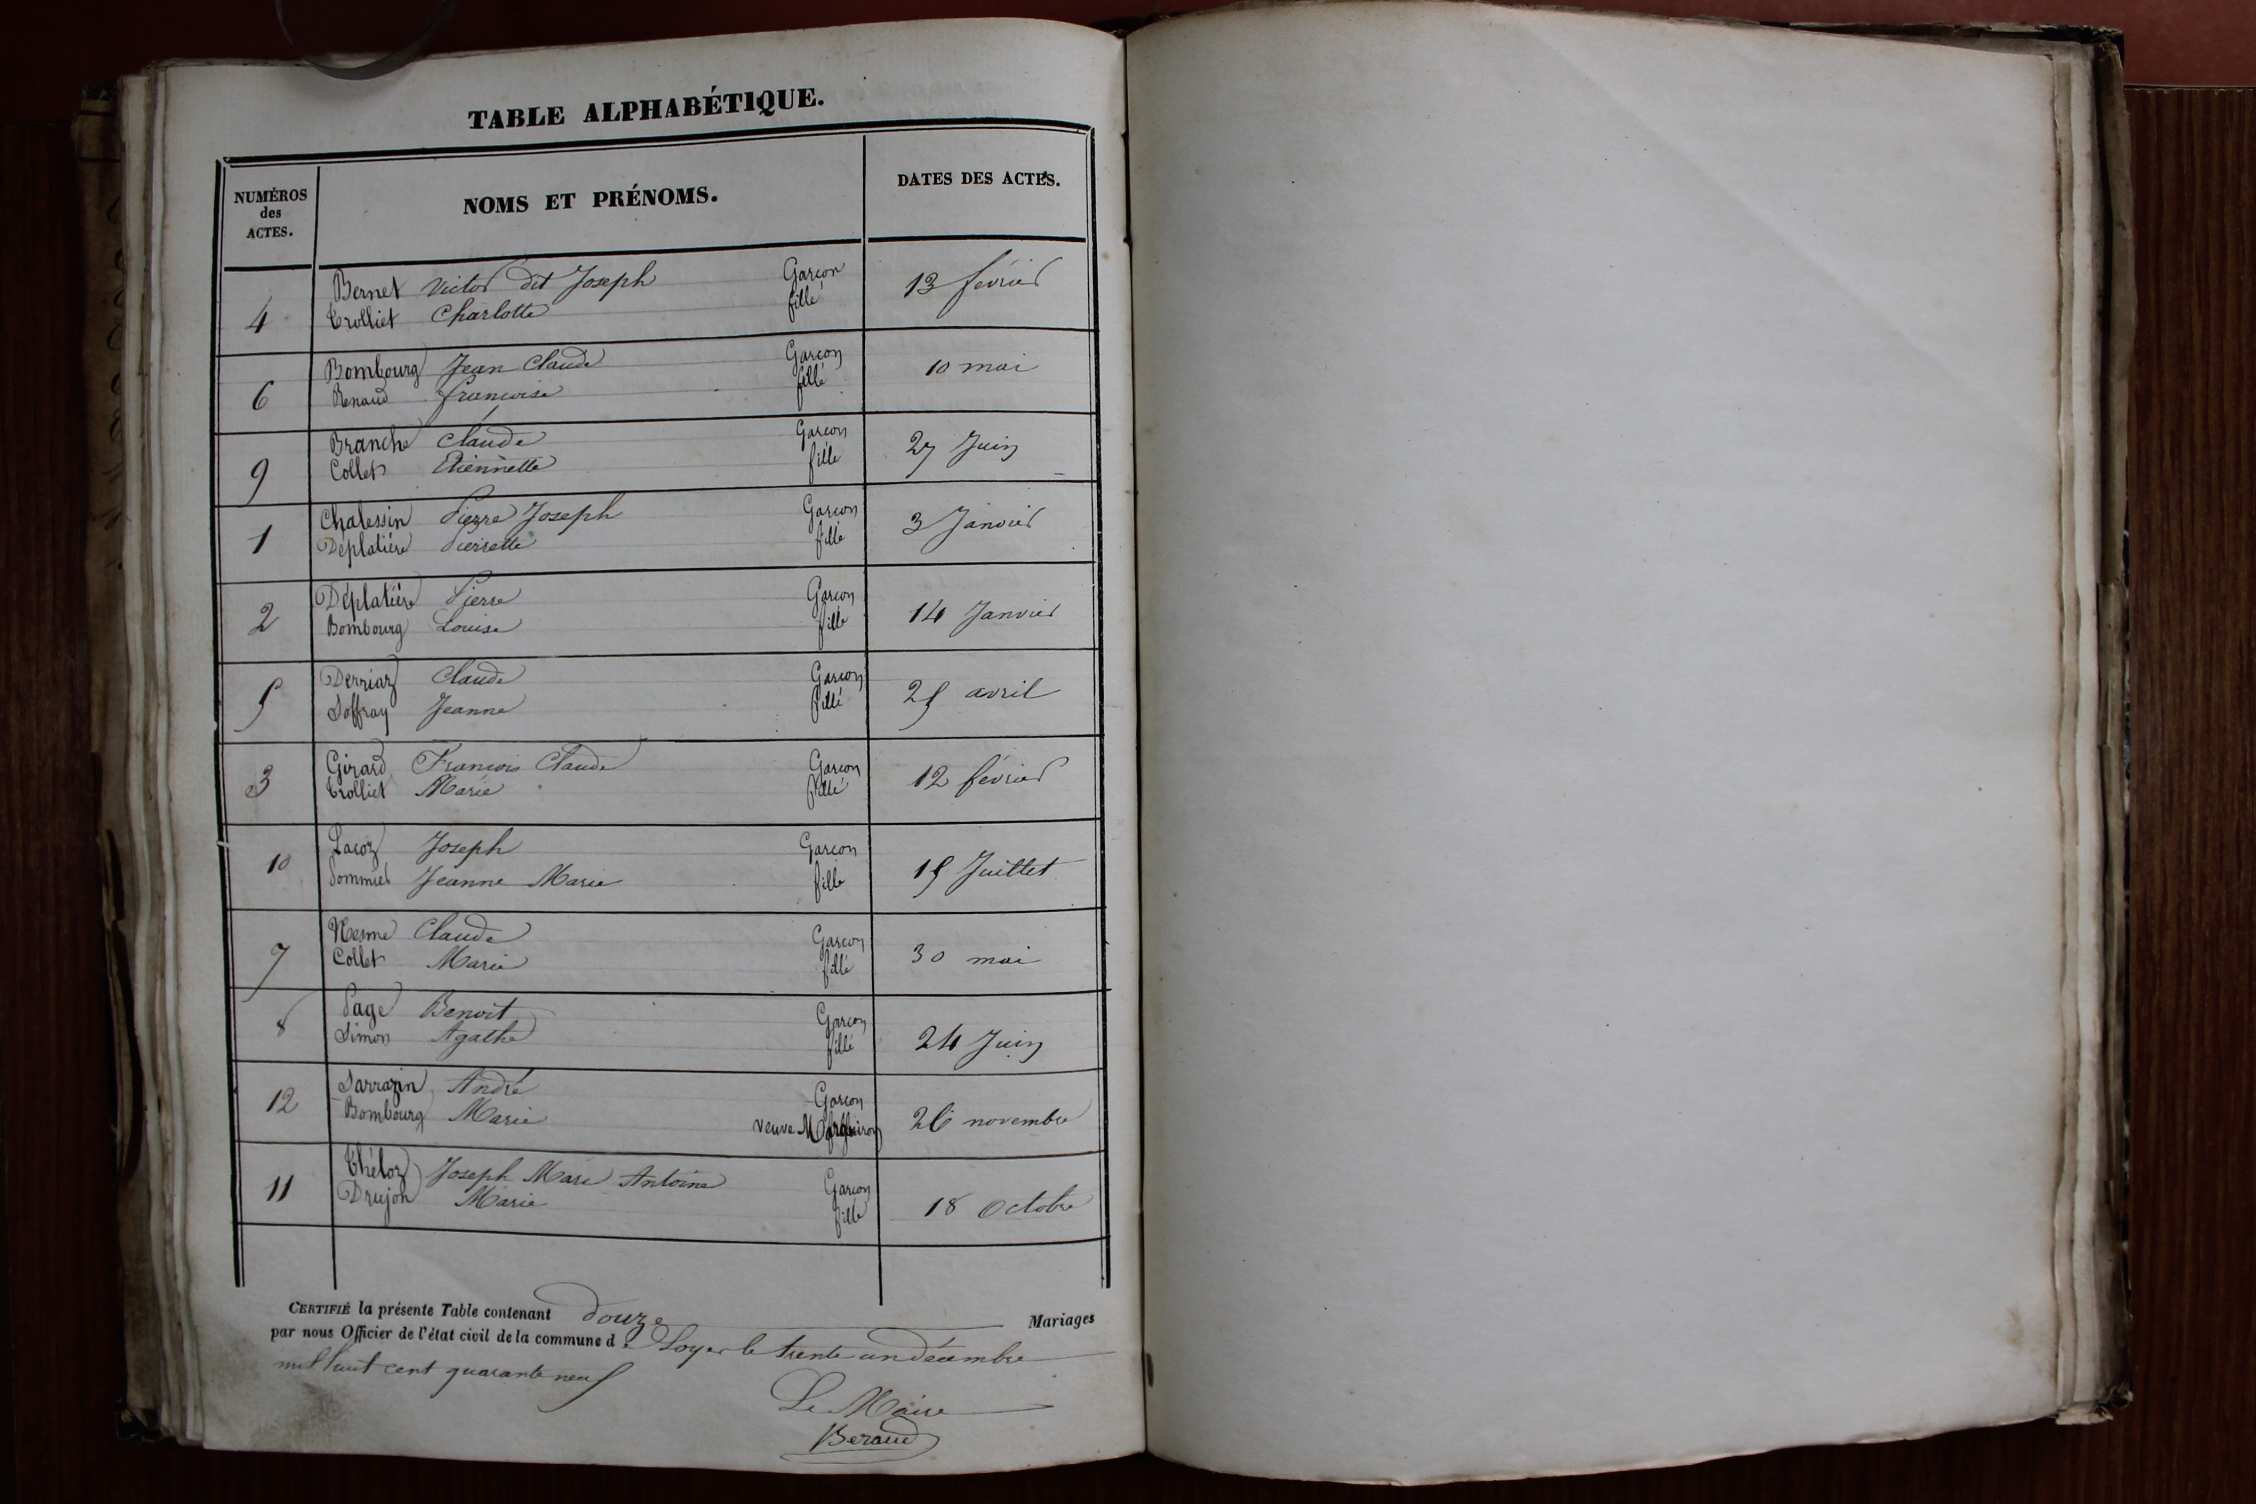 TABLE ALPHABÉTIQUE.
NUMÉROS des ACTES. NOMS ET PRÉNOMS. DATES DES ACTES.
Bernet Victor dit Joseph Garcon
4 Trolliet Charlotte fille 13 février
Bombourg Jean Claude Garcon
6 Renaud francoise fille 10 mai
Branche Claude Garcon
9 Collet Etiennette fille 27 Juin
Chalessin Pierre Joseph Garcon
1 Déplatière Pierrette fille 3 Janvier
Déplatière Pierre Garcon
2 Bombourg Louise fille 14 Janvier
Derriaz Claude Garcon
5 Joffray Jeanne fille 25 avril
Girard Francois Claude Garcon
3 Trolliet Marie fille 12 février
Lacoz Joseph Garcon
10 Sommier Jeanne Marie fille 15 Juillet
Nesme Claude Garcon
7 Collet Marie fille 30 mai
Page Benoit Garcon
8 Simon Agathe fille 24 Juin
Sarrazin André Garcon
12 Bombourg Marie veuve 26 novembre
Théloz Joseph Marie Antoine Garcon
11 Drujon Marie fille 18 Octobre
CERTIFIÉ la présente Table contenant douze Mariages
par nous Officier de l'état civil de la commune de Loyes le trente un décembre
mil huit cent quarante neuf
Le Maire
Beraud